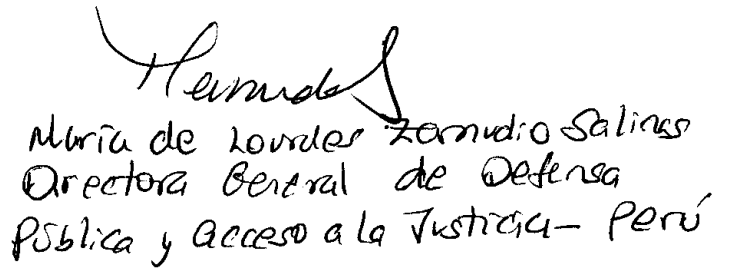 María de Lourdes Zamudio Salinas
Directora General de Defensa
Pública y Acceso a la Justicia - Perú